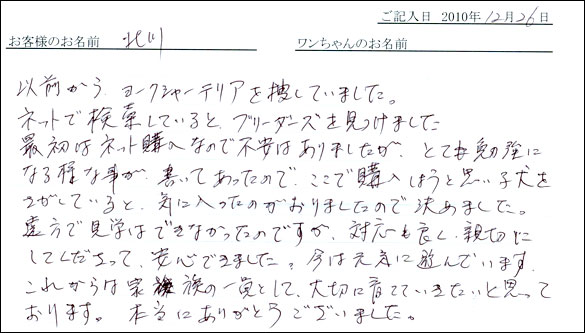 ご記入日 2010年12月26日
お客様のお名前 北川 ワンちゃんのお名前
以前から、ヨークシャーテリアを捜していました。
ネットで検索していると、ブリーダーズを見つけました
最初はネット購入なので不安はありましたが、とても勉強に
なる様な事が、書いてあったので、ここで購入しようと思い子犬を
さがしていると、気に入ったのがおりましたので決めました。
遠方で見学はできなかったのですが、対応も良く、親切に
してくださって、安心できました。今は元気に遊んでいます。
これからは家族の一員として、大切に育てていきたいと思って
おります。本当にありがとうございました。